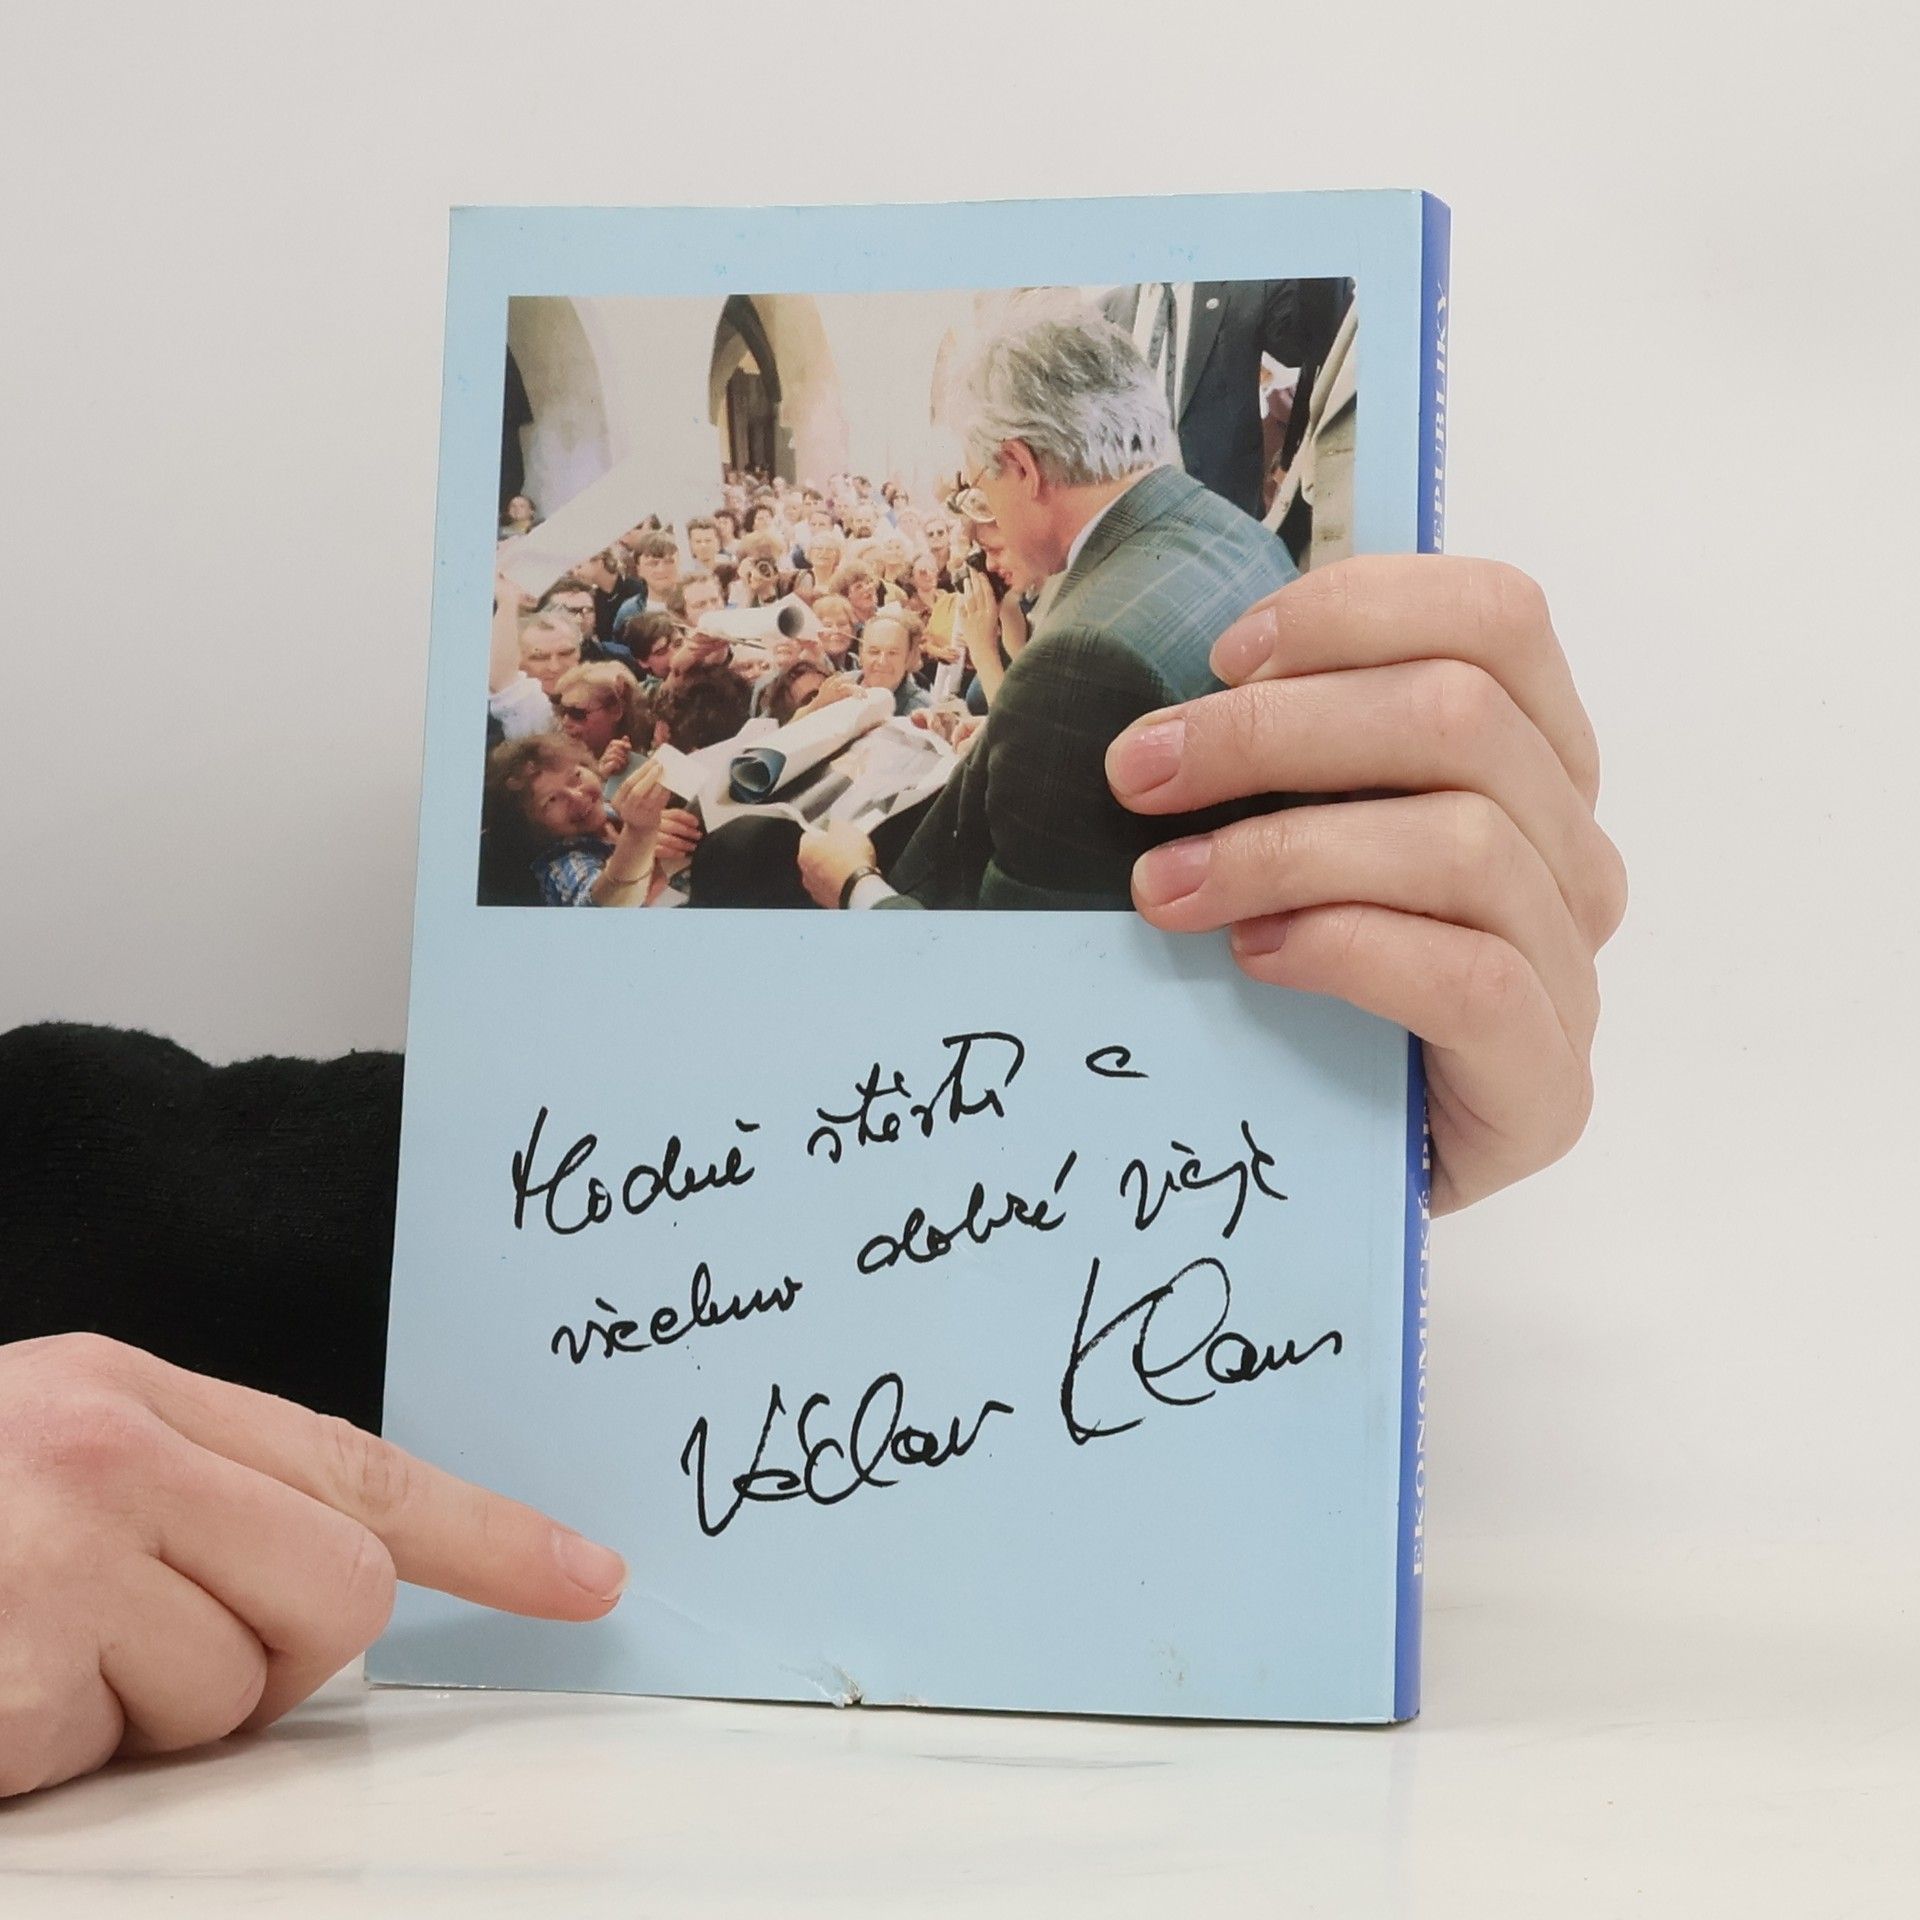 Hodně štěstí a
všechno dobré přeje
Václav Klaus
EKONOMICKÉ REPUBLIKY